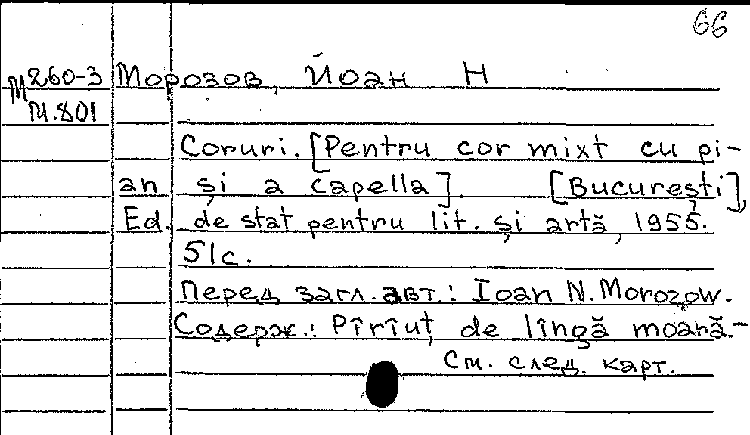 66
М260-3 Морозов, Йоан Н
М.801
Coruri. [Pentru cor mixt cu pi-
an și a capella]. [București],
Ed. de stat pentru lit. și artă, 1955.
51c.
Перед загл. авт.: Ioan N. Morozow.
Содерж.: Pîrîuț de lîngă moară.-
См. след. карт.